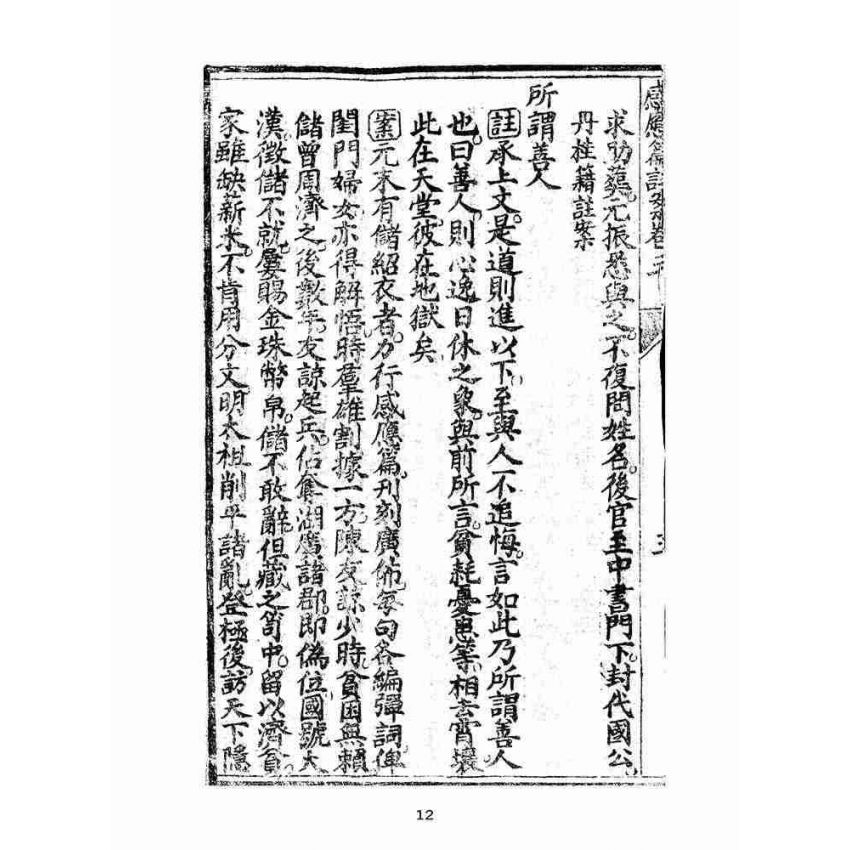 感應篇註案卷
求助葬元振悉與之不復問姓名後官至中書門下封代國公
丹桂籍註案
所謂善人
註承上文是道則進以下至與人不追悔言如此乃所謂善人
也曰善人則心逸日休之象與前所言貧耗憂患等相去霄壤
此在天堂彼在地獄矣
案元末有儲紹衣者力行感應篇刊刻廣佈每句各編彈詞俾
閨門婦女亦得解悟時羣雄割據一方陳友諒少時貧困無賴
儲曾周濟之後數年友諒起兵佔奪湖廣諸郡即偽位國號大
漢徵儲不就屢賜金珠幣帛儲不敢辭但藏之笥中留以濟貧
家雖缺薪水不肯用分文明太祖削平諸亂登極後訪天下隱
12